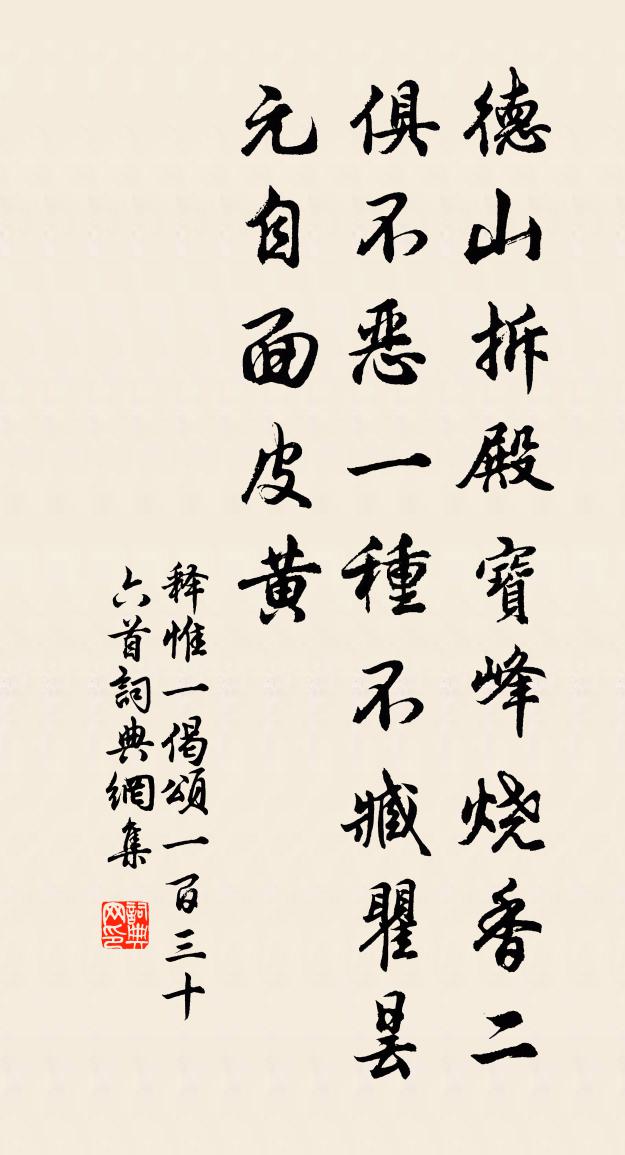 德山拆殿寶峰烧香二
俱不惡一種不臧瞿昙
元自面皮黄
释惟一偈頌一百三十
六首詞典網集
詞典网印